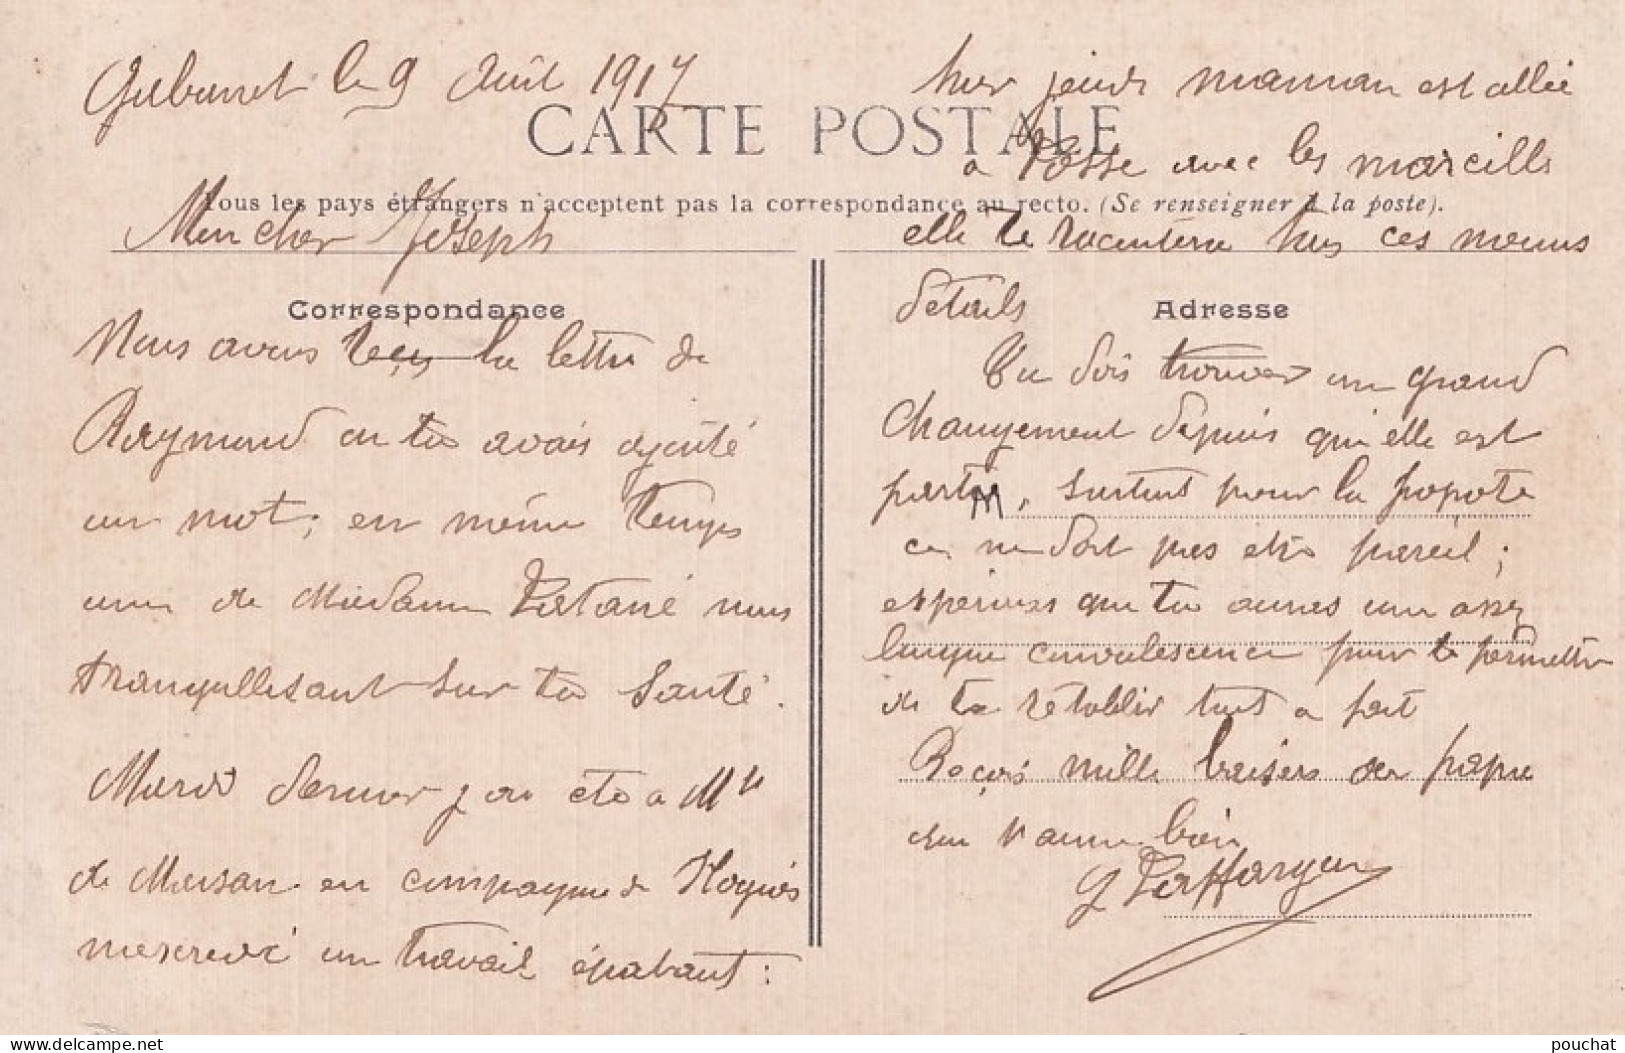 Gabarret le 9 Août 1917
CARTE POSTALE
Tous les pays étrangers n'acceptent pas la correspondance au recto. (Se renseigner à la poste).
Mon cher Joseph
Correspondance
Nous avons reçu la lettre de
Raymond ou tu avais ajouté
un mot; en même temps
une de Madame nous
tranquillisant sur ta santé.
Mardi dernier j ai été a Mt
de Marsan en compagnie de
mercredi un travail épatant:
hier jeudi maman est allée
a Losse avec les marcills
elle te racontera tous ces menus
détails
Adresse
Tu dois trouver un grand
changement depuis qu'elle est
partie, surtout pour la popote
ça ne doit pas etre pareil;
esperons que tu auras une assez
longue convalescence pour te permettre
de te rétablir tout a fait
Reçois mille baisers de papa
qui t aime bien
J Laffargue
pouchat